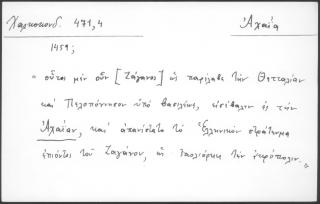 Χαλκοκονδ. 471,4 Ἀχαΐα
1459;
"οὗτος μὲν οὖν [Ζάγανος] ὡς παρέλαβε τὴν Θετταλίαν
καὶ Πελοπόννησον ὑπὸ βασιλέως, εἰσέβαλεν ἐς τὴν
Ἀχαΐαν, καὶ ἀπανίστατο τὸ Ἑλληνικὸν στράτευμα
ἐπιόντος τοῦ Ζαγάνου, ὃ ἐπολιόρκει τὴν ἀκρόπολιν."